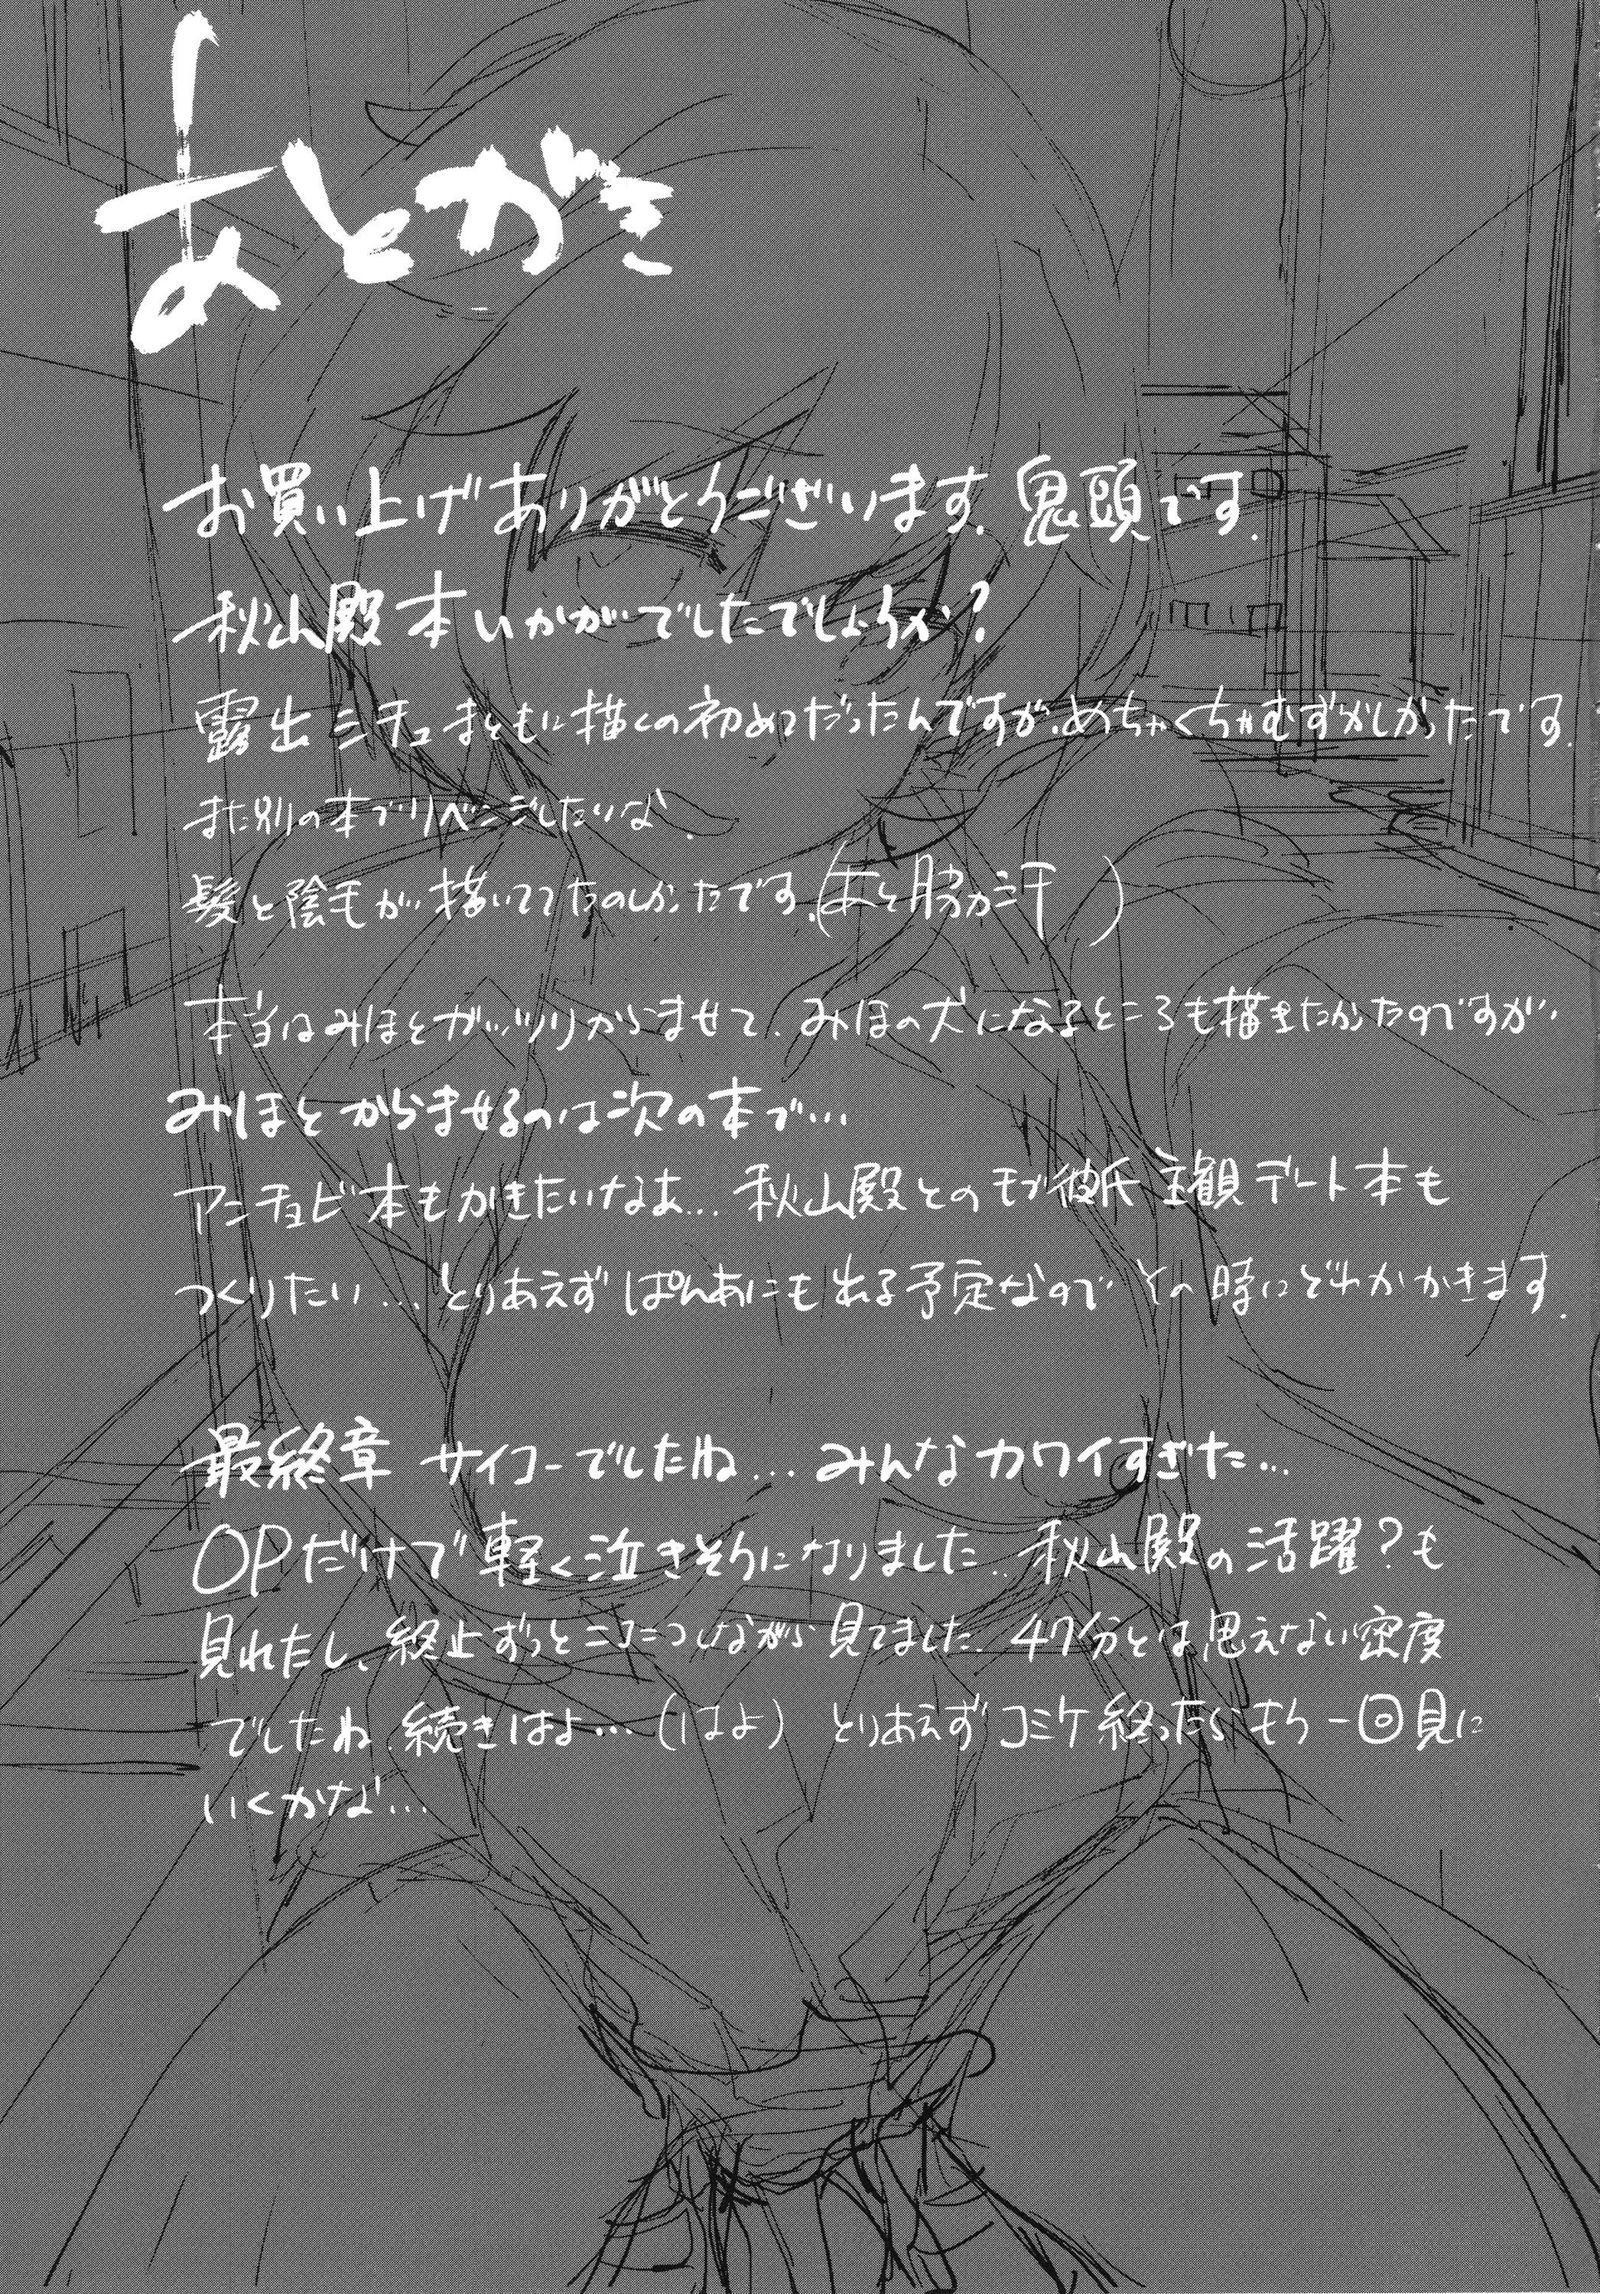 あとがき
お買い上げありがとうございます。鬼頭です。
秋山殿本いかがでしたでしょうか?
露出シチュまともに描くの初めてだったんですが、めちゃくちゃむずかしかったです。
また別の本でリベンジしたいな。
髪と陰毛が描いててたのしかったです。(あと脇汗)
本当はみほとガッツリからませて、みほの犬になるところも描きたかったのですが、
みほとからませるのは次の本で…
アンチョビ本もかきたいなあ… 秋山殿とのモブ彼氏主観デート本も
つくりたい… とりあえずぱんあにも出る予定なのでその時にどれかかきます。
最終章 サイコーでしたね… みんなカワイすぎた…
OPだけで軽く泣きそうになりました。秋山殿の活躍?も
見れたし、終止ずっとニコニコしながら見てました。47分とは思えない密度
でしたね。続きはよ…(はよ) とりあえずコミケ終ったらもう一回見に
いくかな…